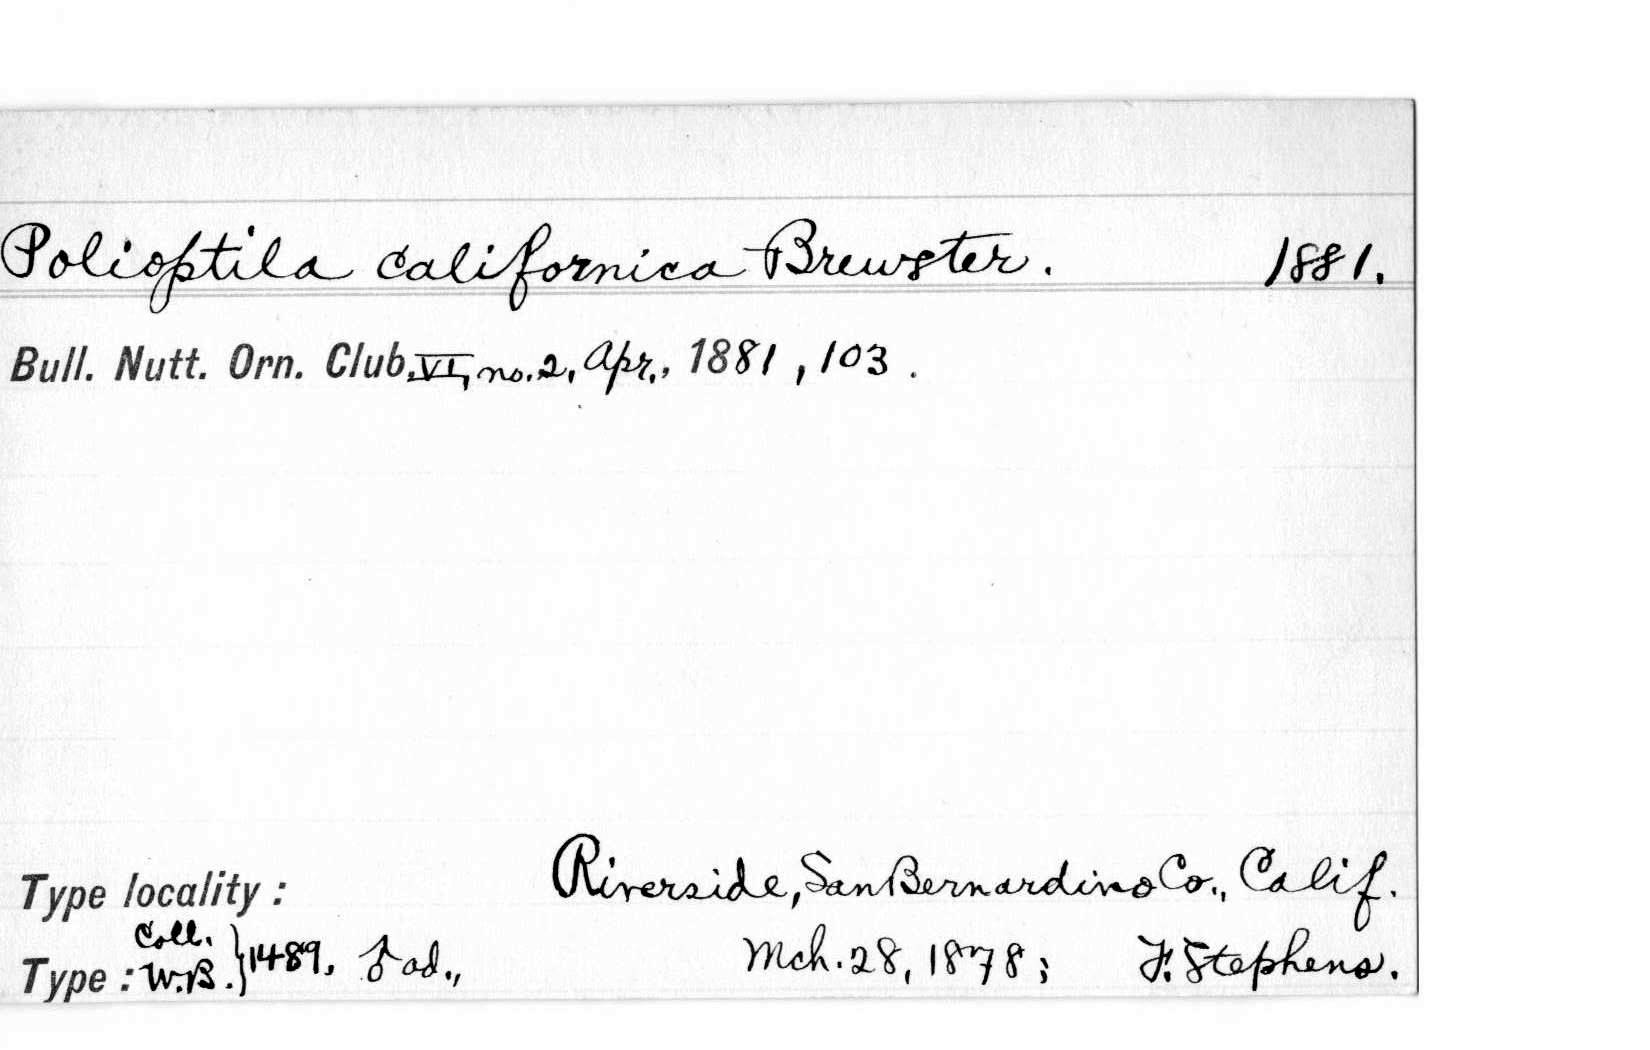 Polioptila californica Brewster. 1881.
Bull. Nutt. Orn. Club, VI, no. 2, Apr., 1881, 103.
Type locality: Riverside, San Bernardino Co., Calif.
Coll.
Type: W.B. } 1489, ♂ ad., Mch. 28, 1878; F. Stephens.